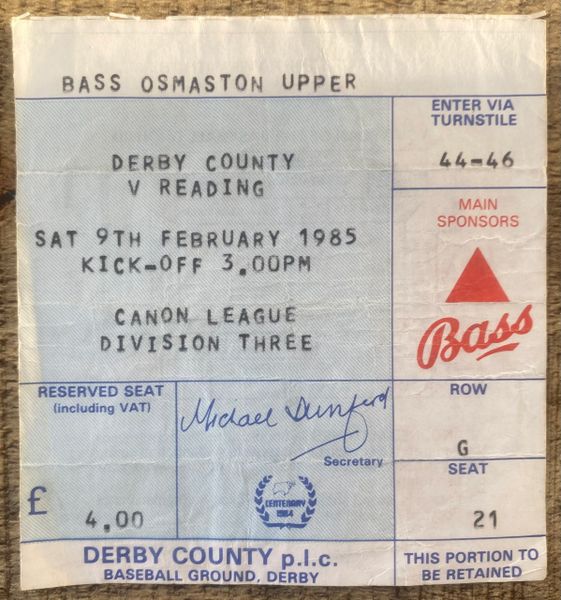 BASS OSMASTON UPPER
ENTER VIA
TURNSTILE
44-46
DERBY COUNTY
V READING
SAT 9TH FEBRUARY 1985
KICK-OFF 3.00PM
CANON LEAGUE
DIVISION THREE
MAIN
SPONSORS
Bass
RESERVED SEAT
(including VAT)
£
4.00
Michael Dunford
Secretary
CENTENARY
1984
ROW
G
SEAT
21
DERBY COUNTY p.l.c.
BASEBALL GROUND, DERBY
THIS PORTION TO
BE RETAINED